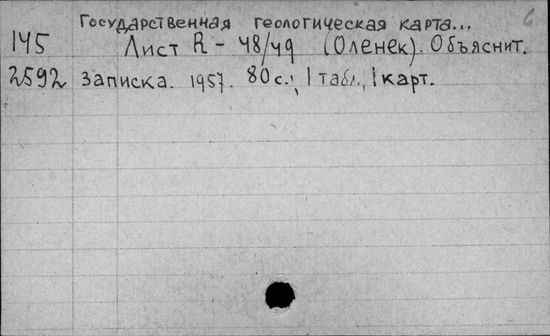 Государственная геологическая карта... 6
145 Лист R - 48/49 (Оленек). Объяснит.
2592 записка. 1957. 80 с.; 1 табл., 1 карт.